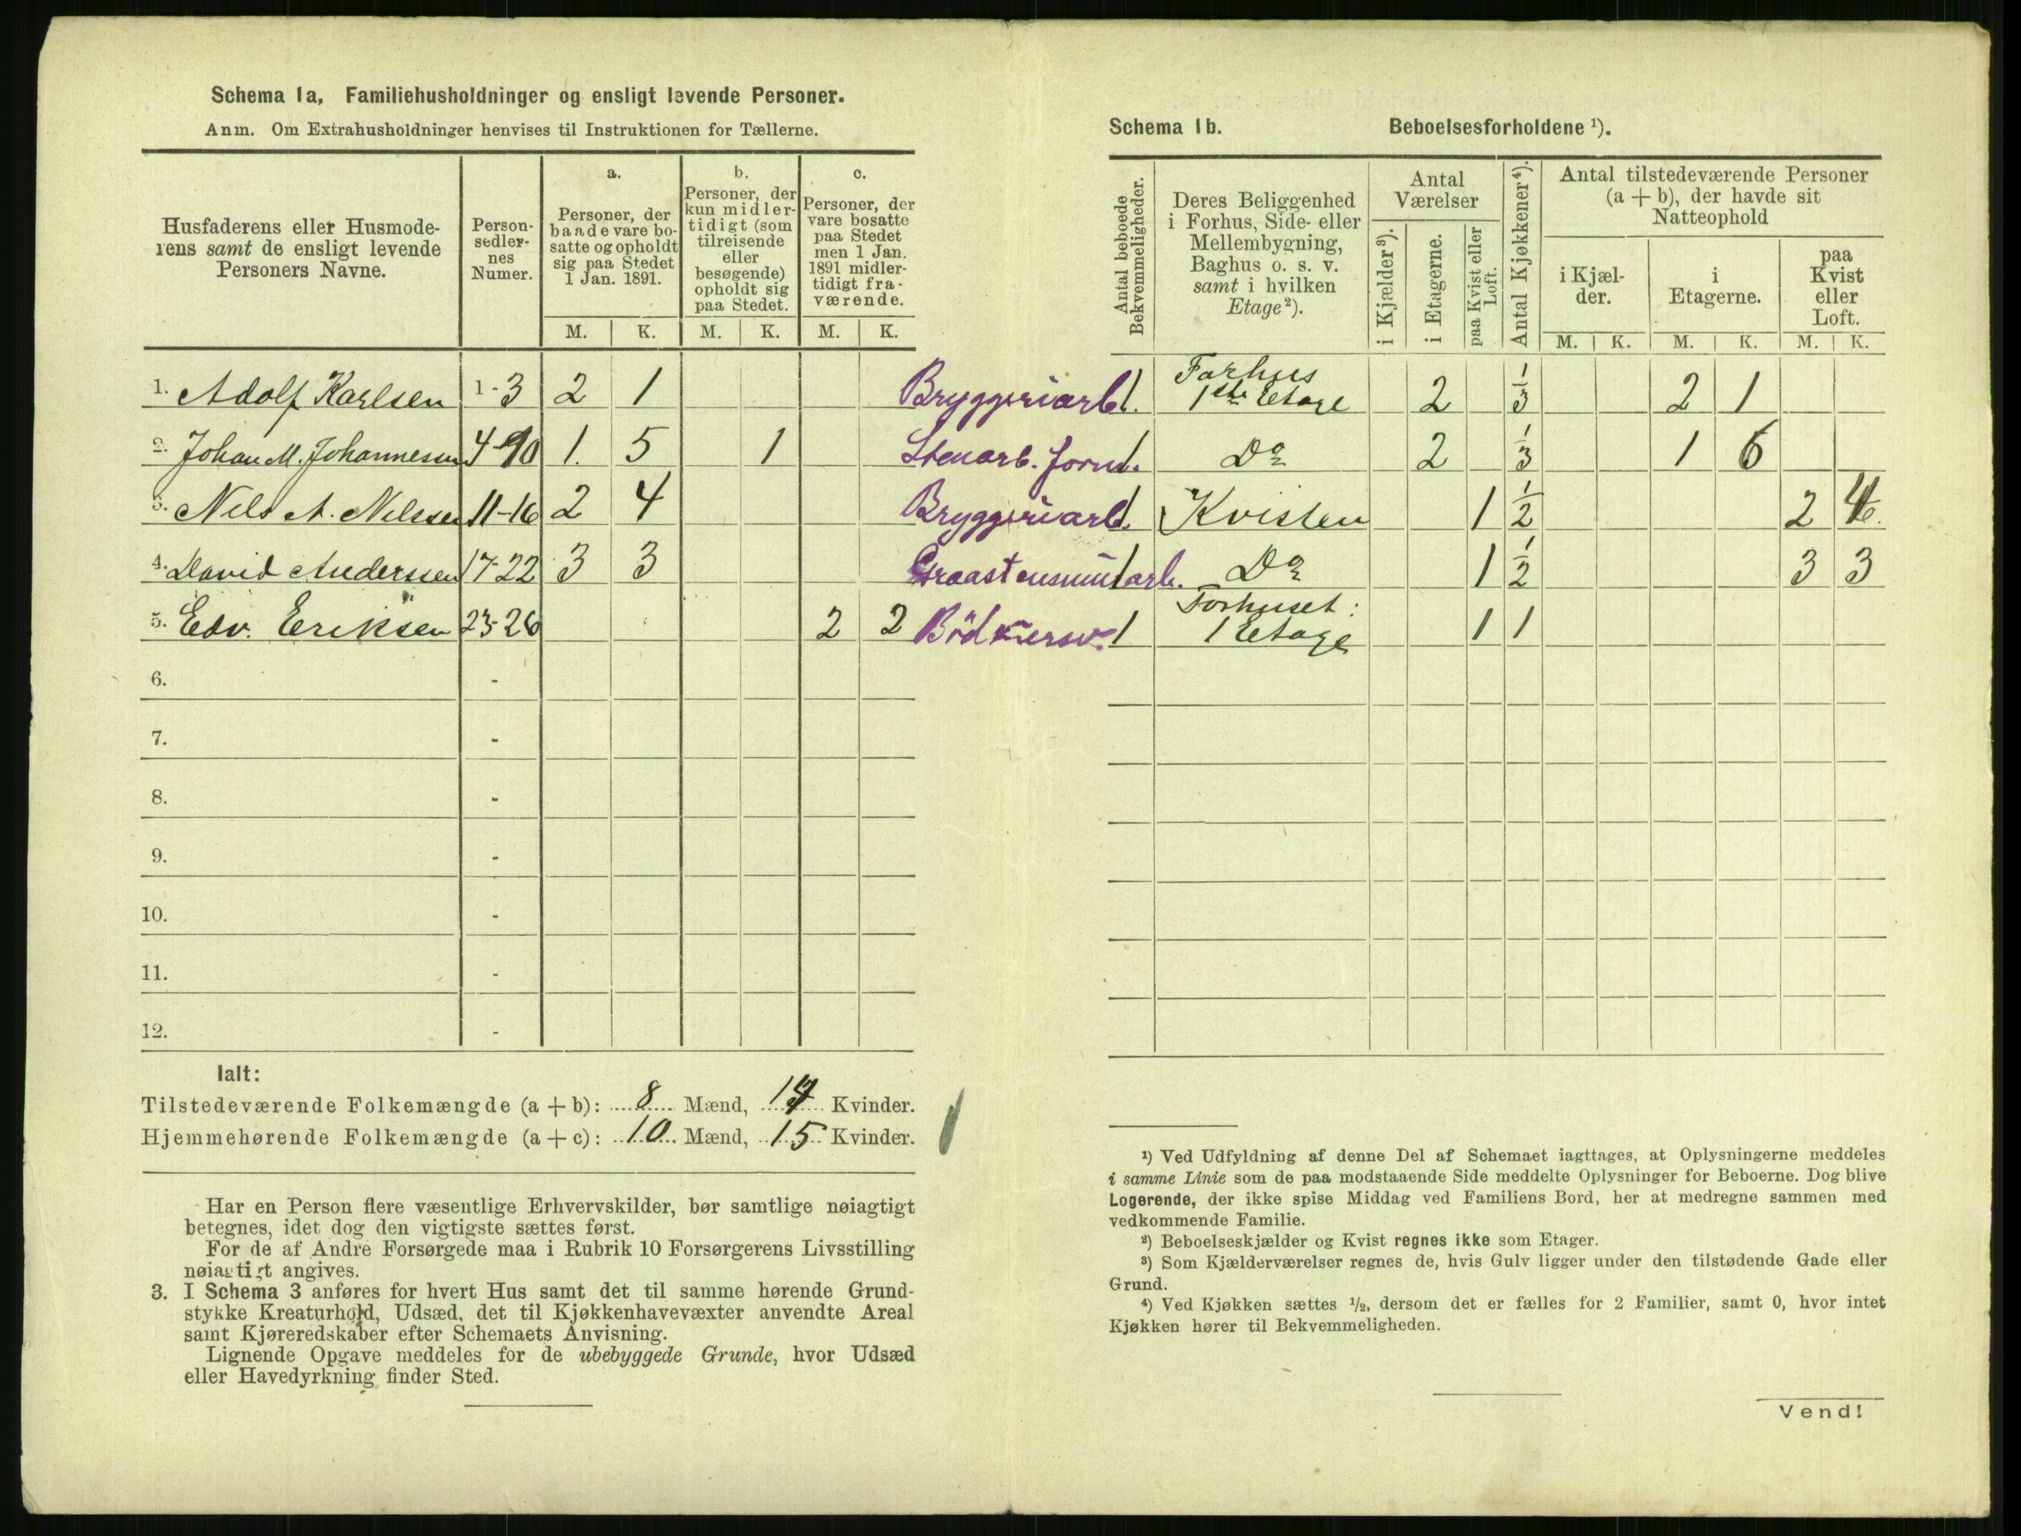 Schema 1a, Familiehusholdninger og ensligt levende Personer.
Anm. Om Extrahusholdninger henvises til Instruktionen for Tællerne.
Husfaderens eller Husmode-
rens samt de ensligt levende
Personers Navne.
Person-
sedler-
nes
Numer.
a.
Personer, der
baade vare bo-
satte og opholdt
sig paa Stedet
1 Jan. 1891.
b.
Personer, der
kun midler-
tidigt (som
tilreisende
eller
besøgende)
opholdt sig
paa Stedet.
c.
Personer, der
vare bosatte
paa Stedet
men 1 Jan.
1891 midler-
tidigt fra-
værende.
M. K. M. K. M. K.
1. Adolf Karlsen 1-3 2 1
2. Johan M. Johannesen 4-10 1. 5 1
3. Nils A. Nilssen 11-16 2 4
4. David Anderssen 17-22 3 3
5. Edv. Eriksen 23-26 2 2
6. -
7. -
8. -
9. -
10. -
11. -
12. -
Ialt:
Tilstedeværende Folkemængde (a + b): 8 Mænd, Kvinder.
Hjemmehørende Folkemængde (a + c): 10 Mænd, 15 Kvinder.
Har en Person flere væsentlige Erhvervskilder, bør samtlige nøiagtigt
betegnes, idet dog den vigtigste sættes først.
For de af Andre Forsørgede maa i Rubrik 10 Forsørgerens Livsstilling
nøiagtigt angives.
3. I Schema 3 anføres for hvert Hus samt det til samme hørende Grund-
stykke Kreaturhold, Udsæd, det til Kjøkkenhavevæxter anvendte Areal
samt Kjøreredskaber efter Schemaets Anvisning.
Lignende Opgave meddeles for de ubebyggede Grunde, hvor Udsæd
eller Havedyrkning finder Sted.
Schema 1b. Beboelsesforholdene ¹).
Antal beboede
Bekvemmeligheder.
Deres Beliggenhed
i Forhus, Side- eller
Mellembygning,
Baghus o. s. v.
samt i hvilken
Etage²).
Antal
Værelser
i Kjælder³).
i Etagerne.
paa Kvist eller
Loft.
Antal Kjøkkener⁴).
Antal tilstedeværende Personer
(a + b), der havde sit
Natteophold
i Kjæl-
der.
i
Etagerne.
paa
Kvist
eller
Loft.
M. K. M. K. M. K.
Bryggeriarb. 1 Forhus
1ste Etage 2 1/3 2 1
Stenarb. 1 Do 2 1/3 1 6
Bryggeriarb. 1 Kvisten 1 1/2 2 4
1 Do 1 1/2 3 3
Bödkersv. 1 Forhuset:
1 Etage 1 1
¹) Ved Udfyldning af denne Del af Schemaet iagttages, at Oplysningerne meddeles
i samme Linie som de paa modstaaende Side meddelte Oplysninger for Beboerne. Dog blive
Logerende, der ikke spise Middag ved Familiens Bord, her at medregne sammen med
vedkommende Familie.
²) Beboelseskjælder og Kvist regnes ikke som Etager.
³) Som Kjælderværelser regnes de, hvis Gulv ligger under den tilstødende Gade eller
Grund.
⁴) Ved Kjøkken sættes ½, dersom det er fælles for 2 Familier, samt 0, hvor intet
Kjøkken hører til Bekvemmeligheden.
Vend!